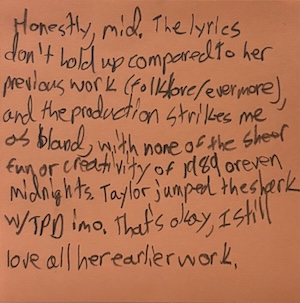 Honestly, mid. The lyrics
don't hold up compared to her
previous work (folklore/evermore),
and the production strikes me
as bland, with none of the sheer
fun or creativity of 1989 or even
midnights. Taylor jumped the shark
w/TPD imo. That's okay, I still
love all her earlier work.